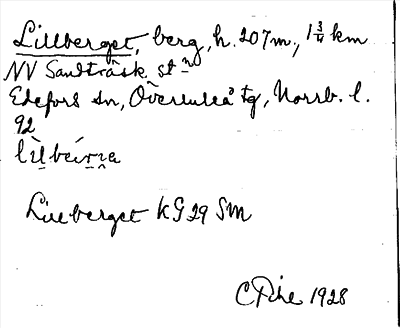 Lillberget, berg, h. 207 m, 1 3/4 km
NV Sandträsk stn
Edefors sn, Överluleå tg, Norrb. l.
92
Lilleberget KG 29 SM
1928